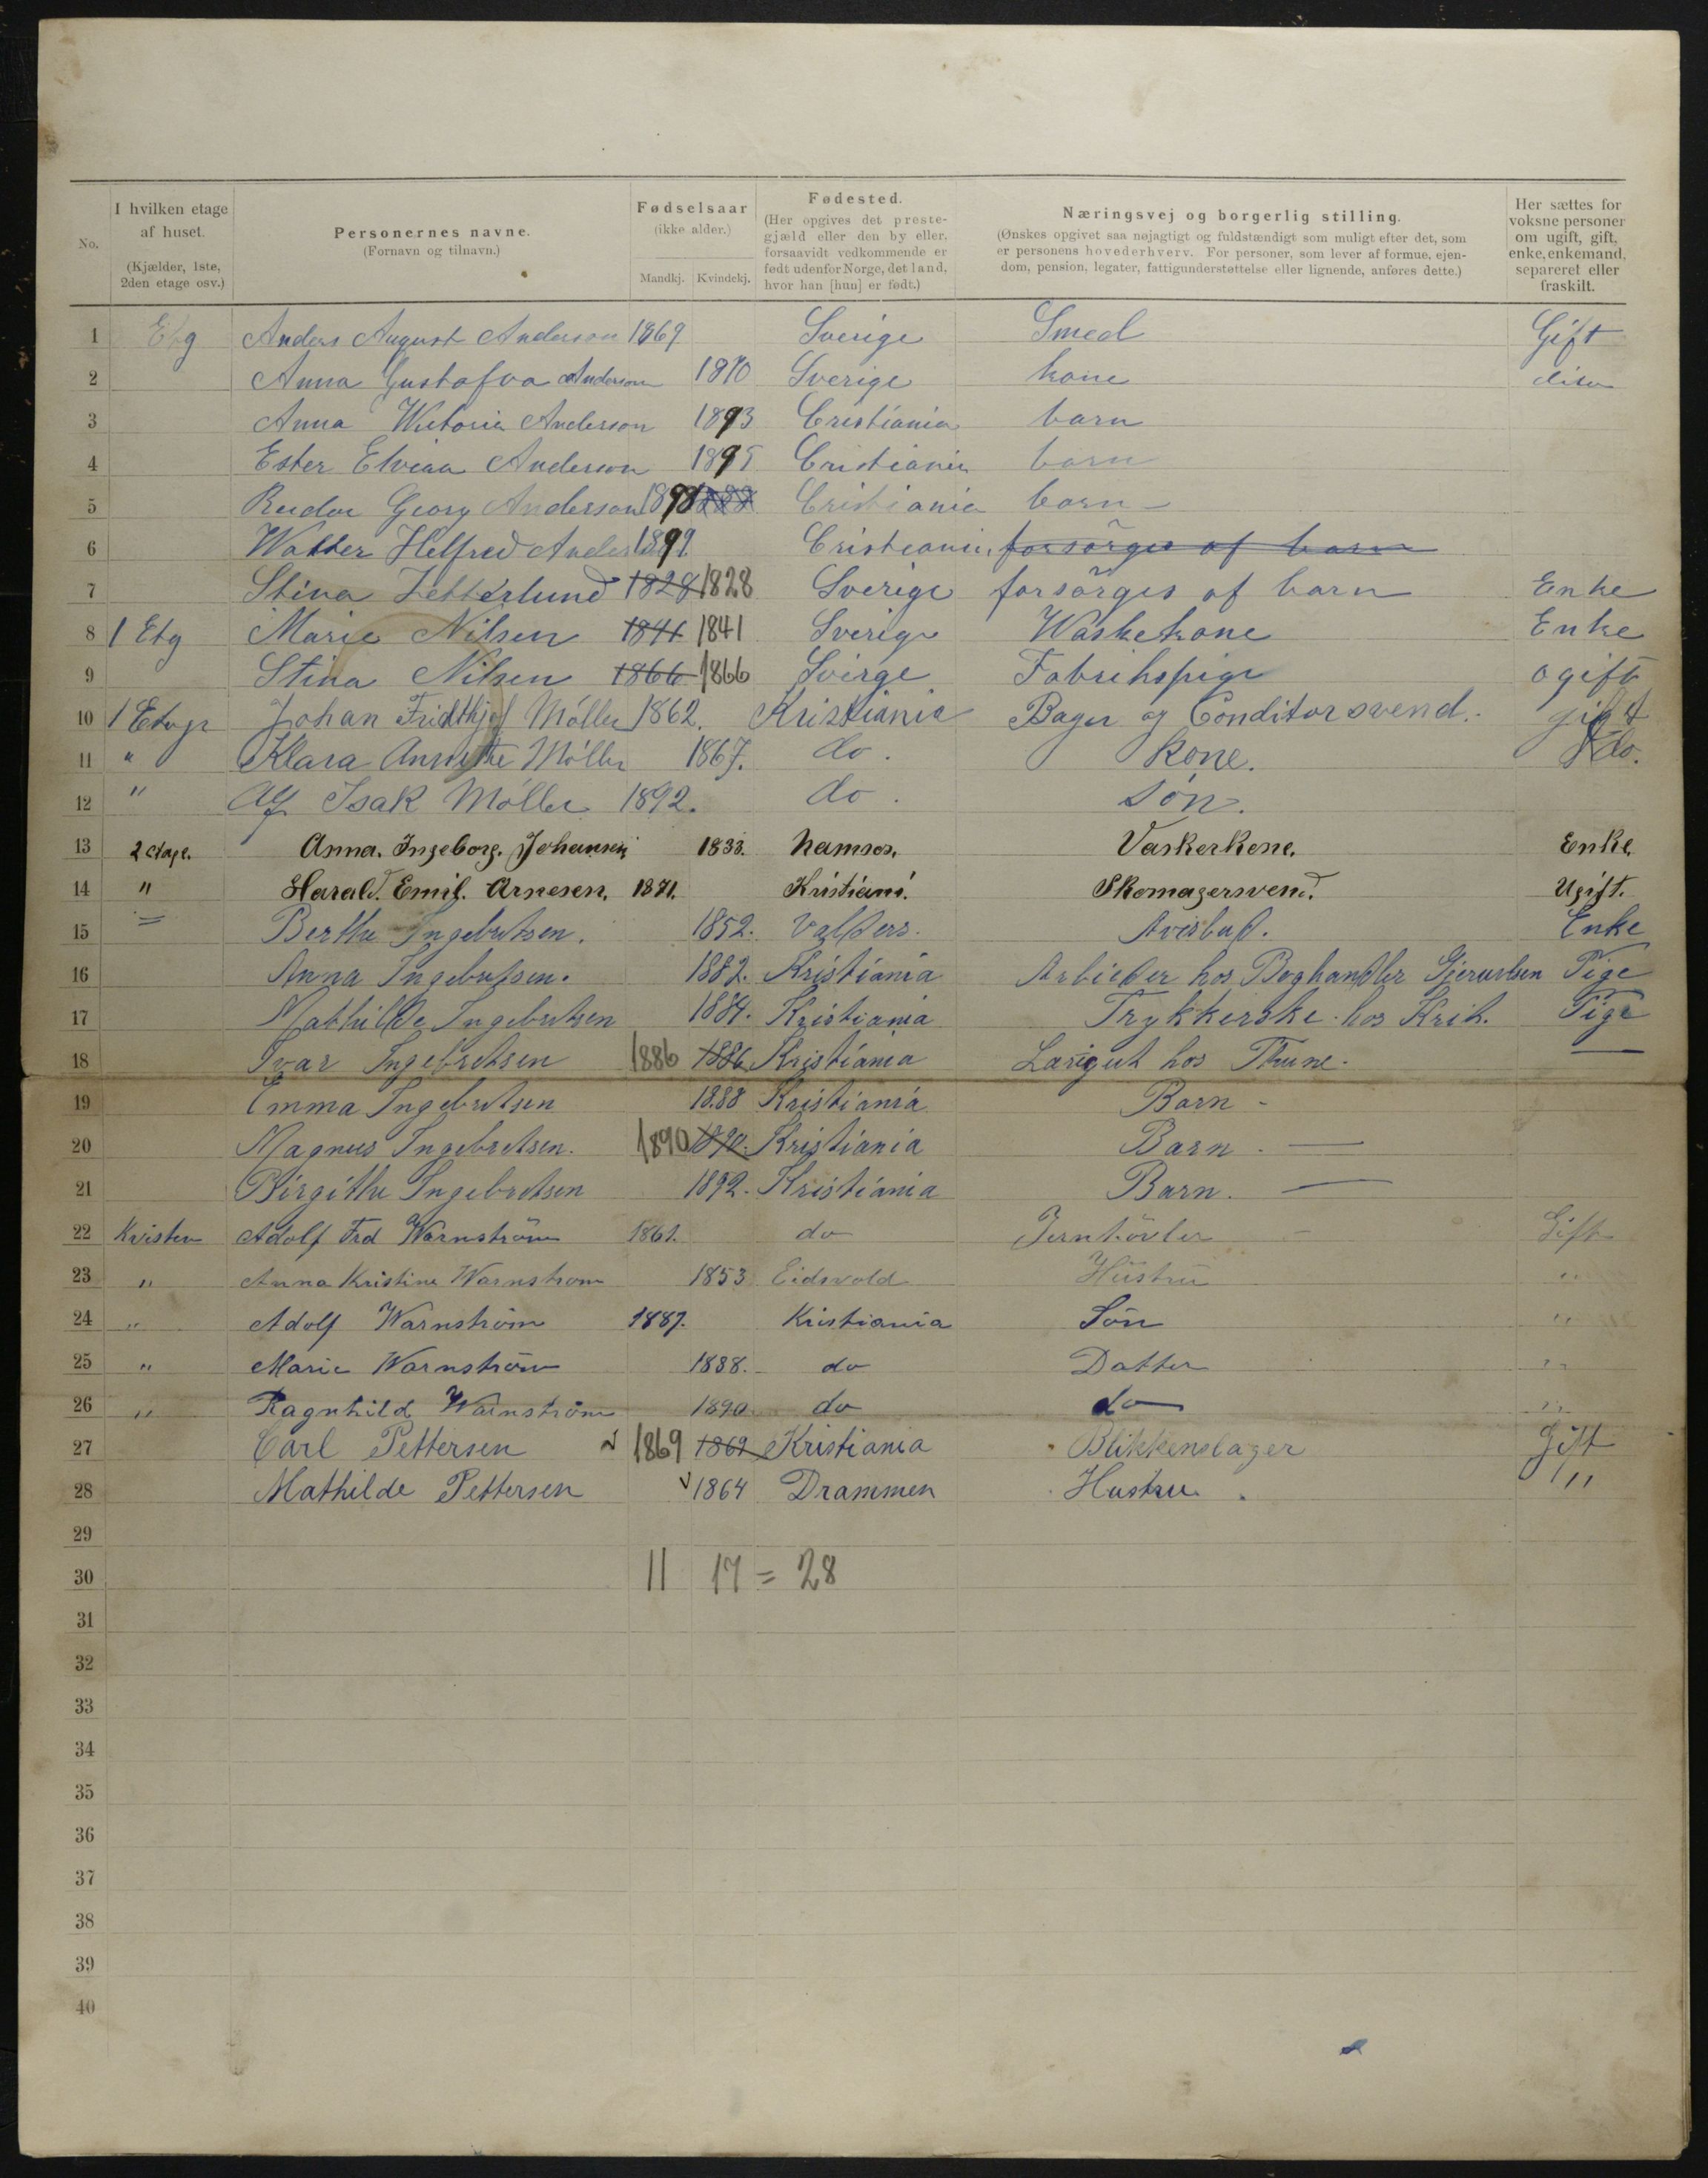 No. I hvilken etage af huset. (Kjælder, 1ste, 2den etage osv.) Personernes navne. (Fornavn og tilnavn.) Fødselsaar (ikke alder.) Mandkj. Kvindekj. Fødested. (Her opgives det prestegjæld eller den by eller, forsaavidt vedkommende er født udenfor Norge, det land, hvor han [hun] er født.) Næringsvej og borgerlig stilling. (Ønskes opgivet saa nøjagtigt og fuldstændigt som muligt efter det, som er personens hovederhverv. For personer, som lever af formue, ejendom, pension, legater, fattigunderstøttelse eller lignende, anføres dette.) Her sættes for voksne personer om ugift, gift, enke, enkemand, separeret eller fraskilt.
1 Etg Anders August Anderson 1869 Sverige Smed Gift
2 Anna Gustafva Anderson 1870 Sverige kone
3 Anna Wictoria Anderson 1893 Cristiania barn
4 Ester Anderson 1895 Cristiania barn
5 Georg Anderson 1898 Cristiania barn
6 Walter Helfred 1899 Cristiania forsörges af barn
7 Stina Zetterlund 1828 1828 Sverige forsörges af barn Enke
8 1 Etg Marie Nilsen 1841 1841 Sverige Waskekone Enke
9 Stina Nilsen 1866 1866 Svirge Fabrikspige ogift
10 1 Etage Johan Fridthjof Möller 1862. Kristiania Bager og Conditorsvend. gift
11 " Klara Annette Möller 1867. do. kone. do.
12 " Alf Isak Möller 1892. do. sön.
13 2 etage. Anna. Ingeborg. Johansen 1833. Namsos. Vaskerkone. Enke
14 " Harald. Emil. Arnesen. 1871. Kristiani. Skomagersvend. Ugift.
15 = Berthe Ingebretsen. 1852. Valders. Avisbud. Enke
16 Anna Ingebretsen. 1882. Kristiania Arbieder hos Boghandler Pige
17 Mathilde Ingebretsen 1884. Kristiania Trykkerske hos Krih. Pige
18 Ivar Ingebretsen 1886 1886 Kristiania hos Thune.
19 Emma Ingebretsen 1888 Kristiania Barn -
20 Magnus Ingebretsen. 1890 1890. Kristiania Barn. —
21 Birgithe Ingebretsen 1892. Kristiania Barn. —
22 Kvisten Adolf Frd Warnström 1861. do Jernhövler - Gift
23 " Anna Kristine Warnstrom 1853 Eidsvold Hüstrü "
24 " Adolf Warnström 1887. Kristiania Sön "
25 " Marie Warnström 1888. do Datter "
26 " Ragnhild Warnström 1890 do do "
27 Carl Pettersen 1869 1869 Kristiania Blikkenslager Gift
28 Mathilde Pettersen 1864 Drammen Hustru. "
29
30 11 17 = 28
31
32
33
34
35
36
37
38
39
40